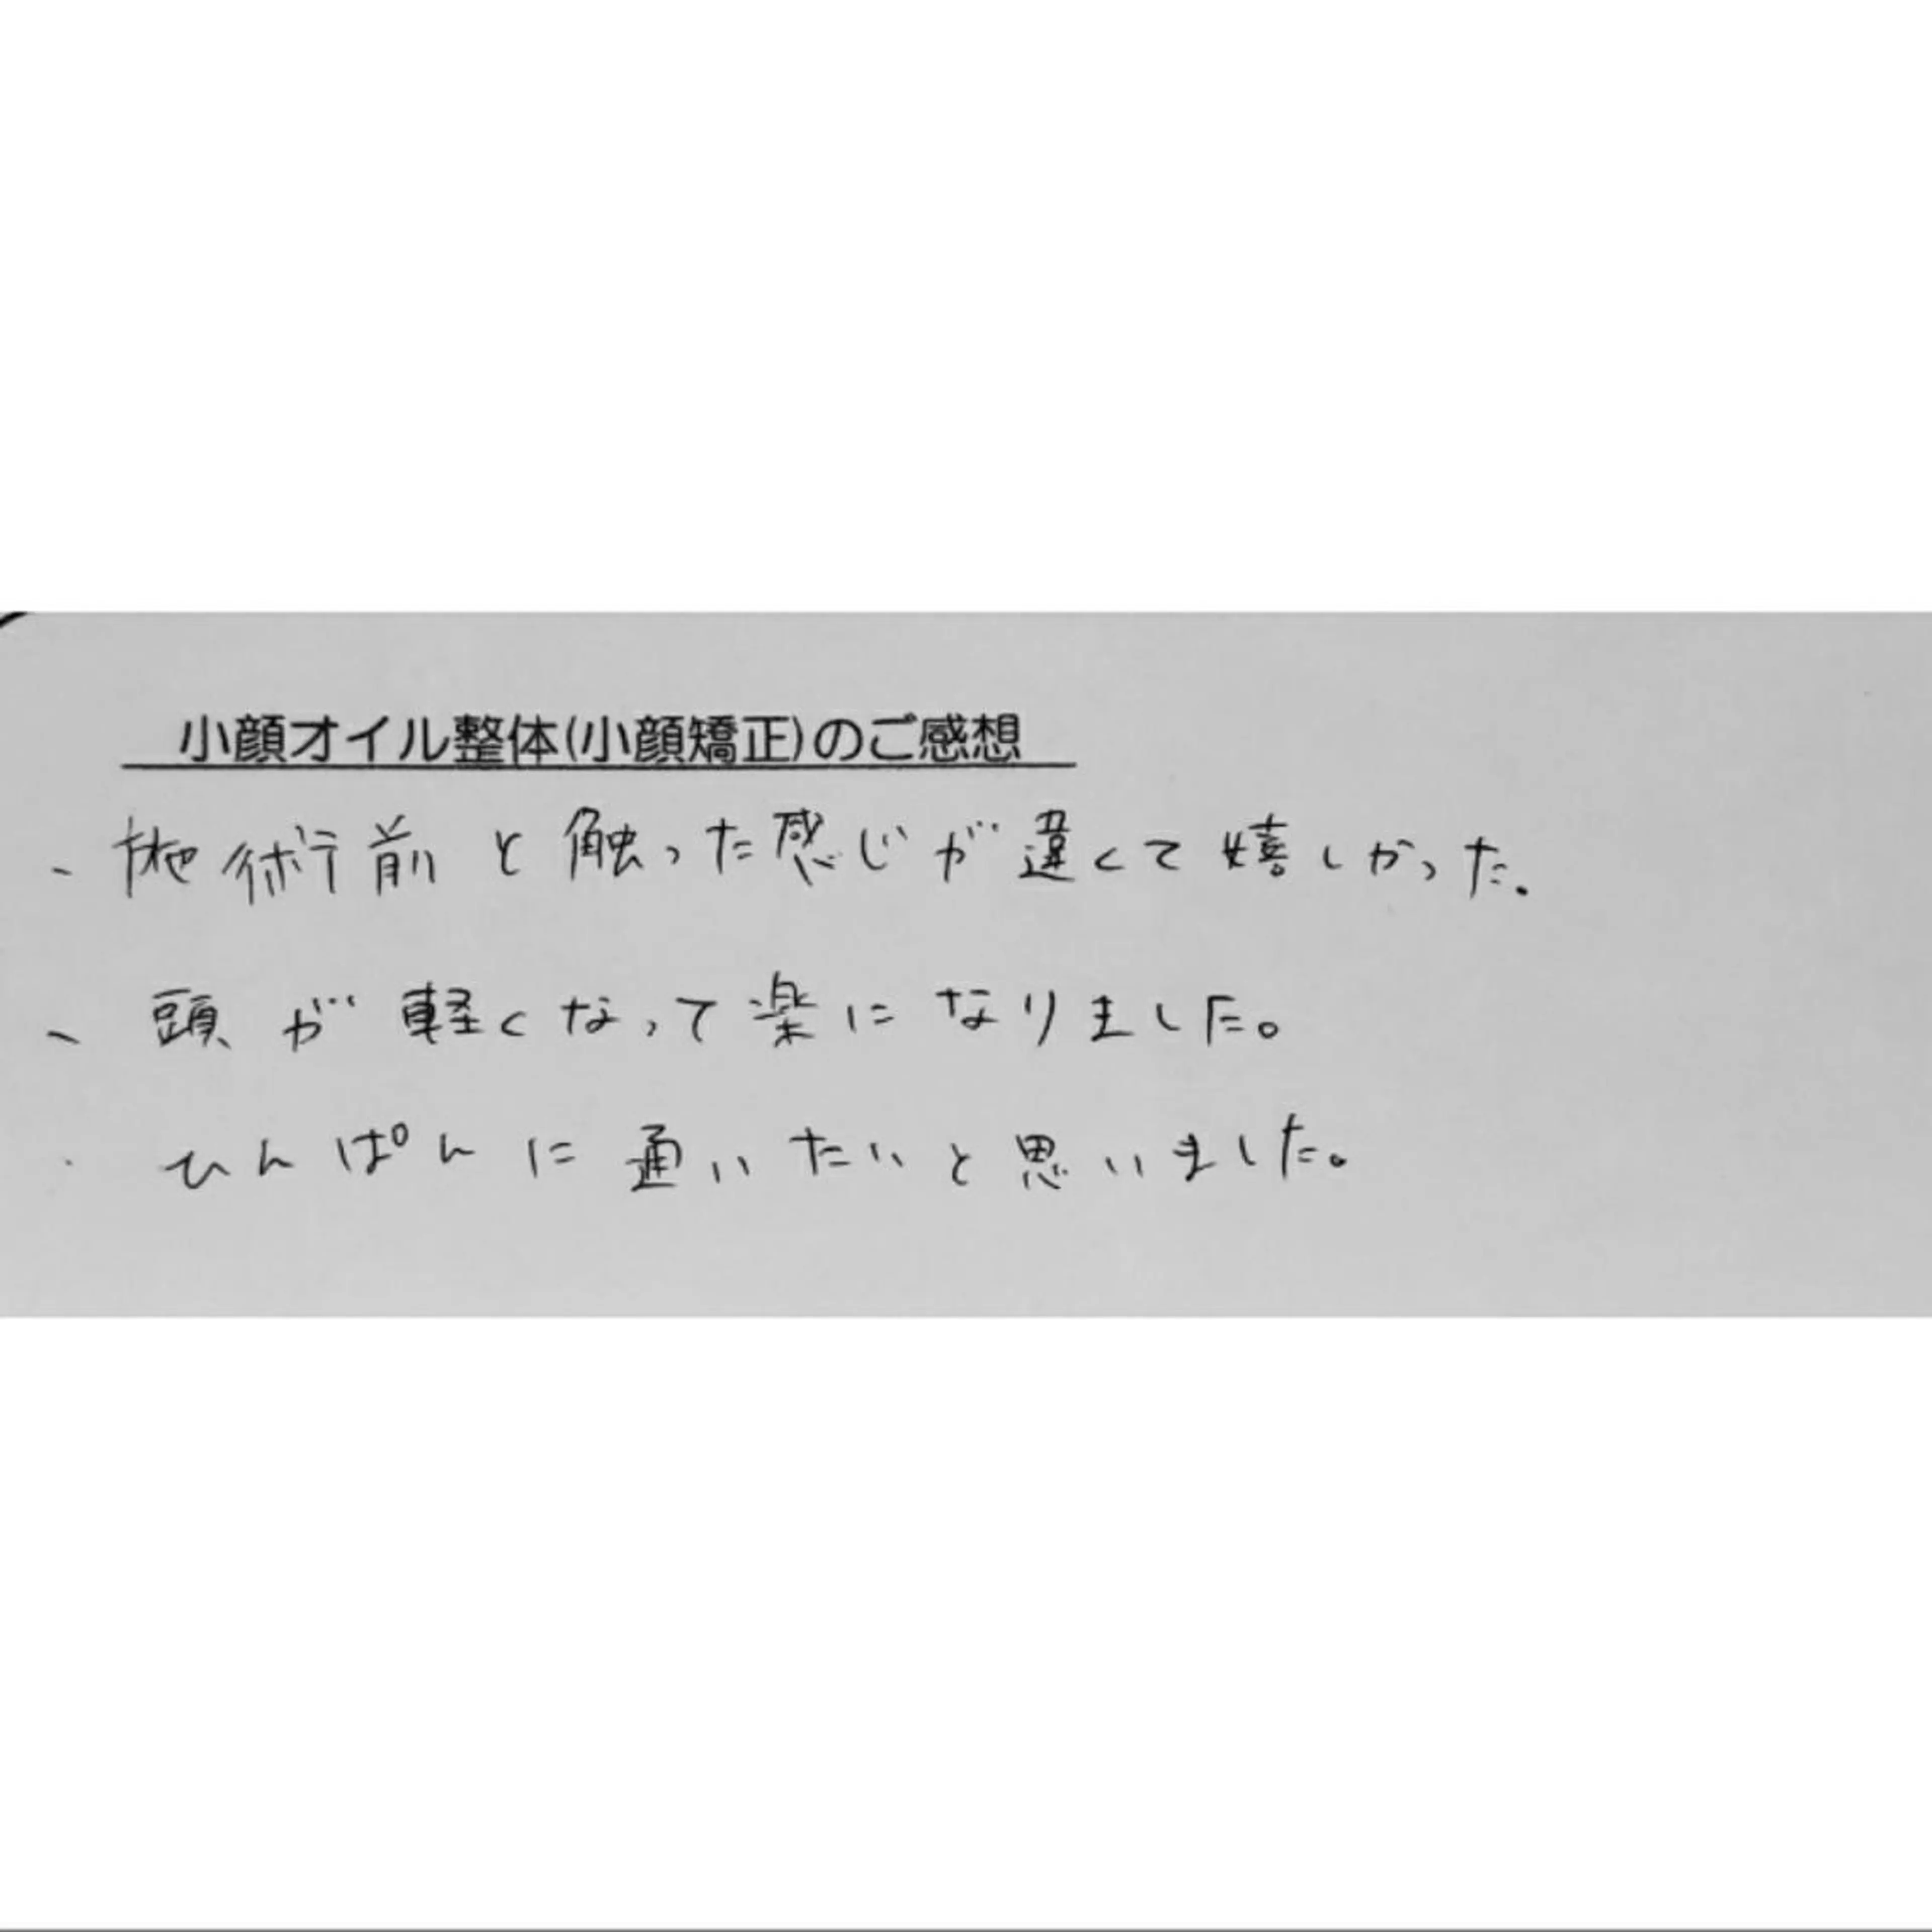 小顔オイル整体(小顔矯正)のご感想
、施術前と触った感じが違くて嬉しかった。
、頭が軽くなって楽になりました。
・ひんぱんに通いたいと思いました。